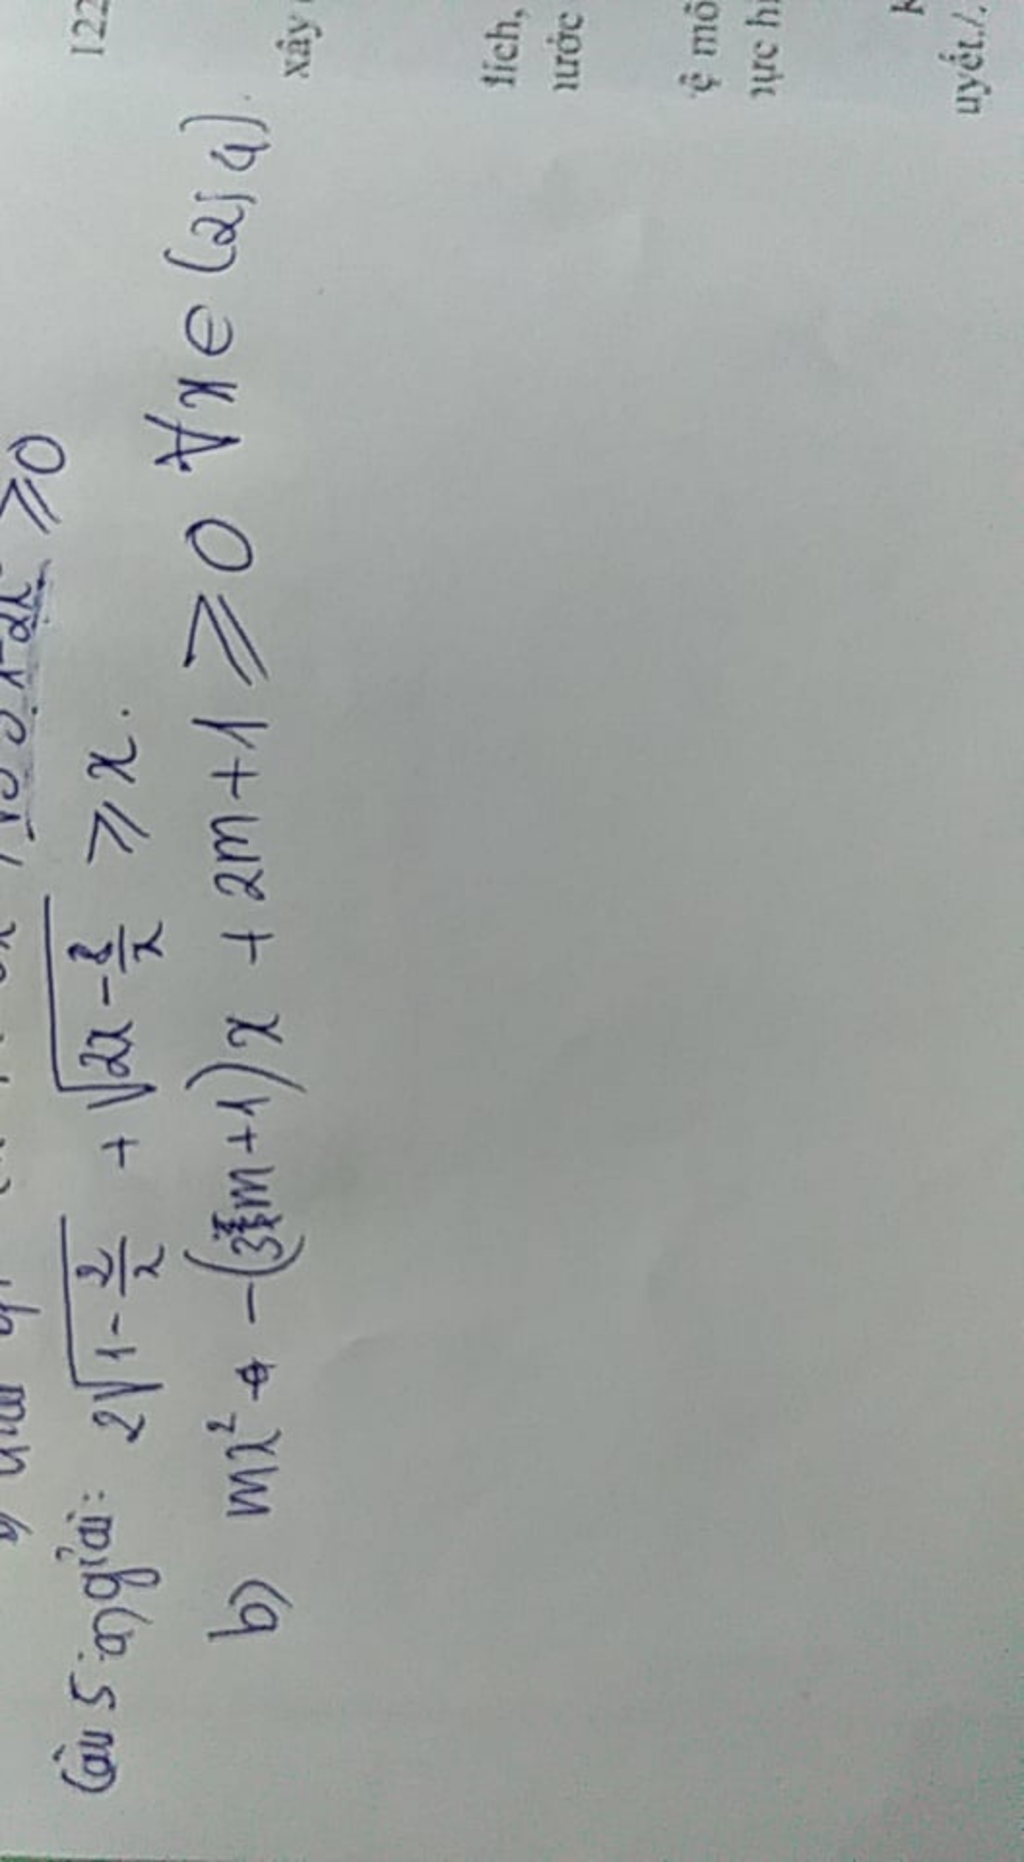 ≥0
Câu 5: a) giải: 2√(1-2/x) + √(2x-8/x) ≥ x.
b) mx² - (3m+1)x + 2m+1 ≥ 0 ∀x ∈ (2; 4).
122
xây
lích,
ước
ệ mô
ực h
uyết./.